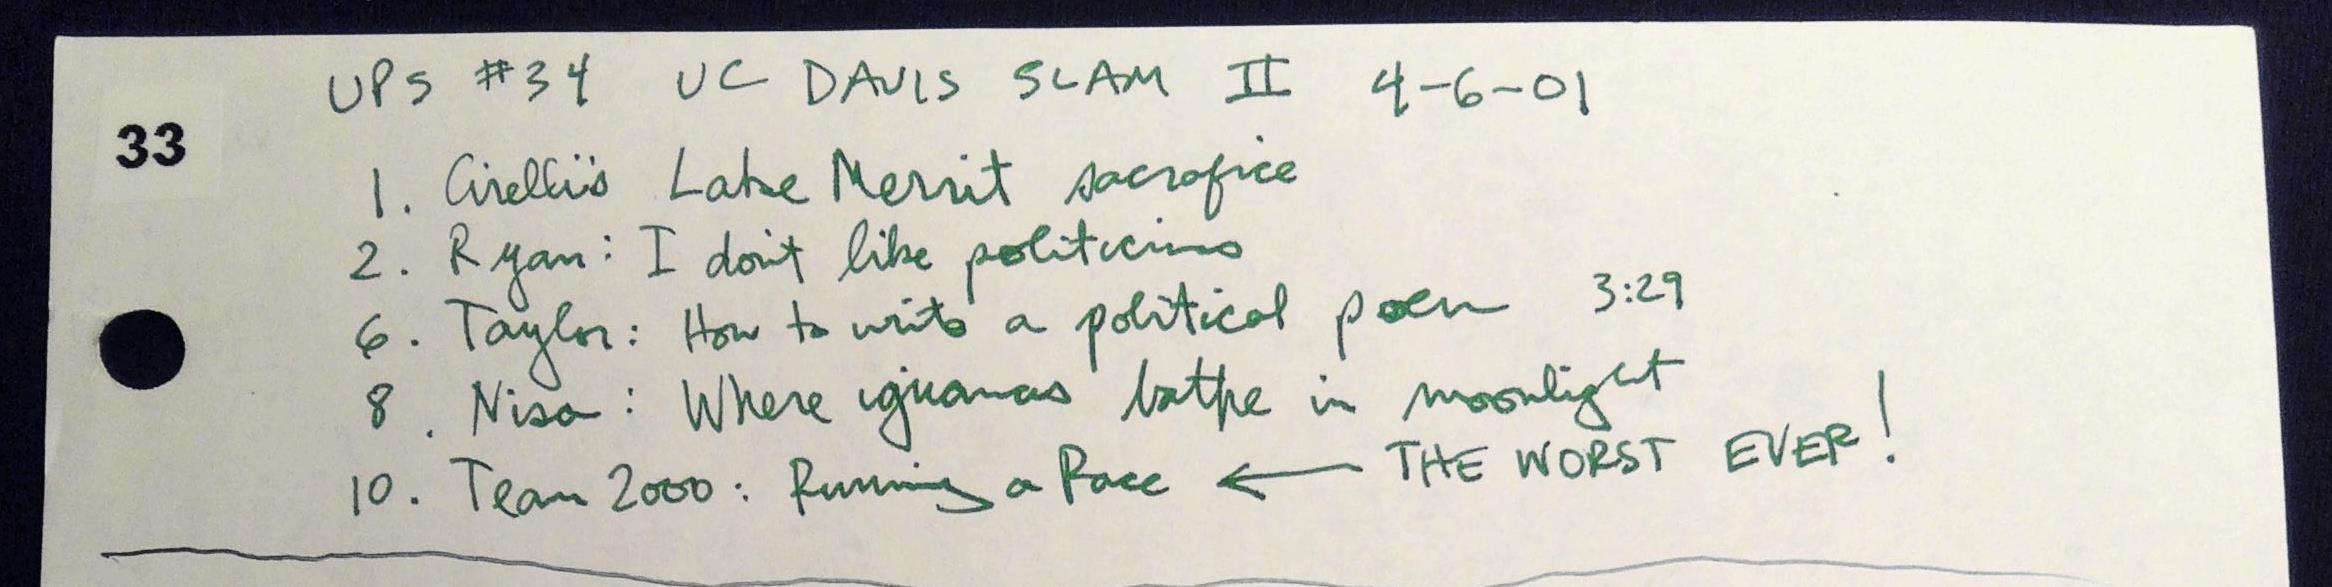 UPS #34 UC DAVIS SLAM II 4-6-01
33
1. Cirelli's Lake Merrit sacrofice
2. Ryan: I don't like politicians
6. Taylor: How to write a political poem 3:29
8. Nisa: Where iguanas bathe in moonlight
10. Team 2000: Running a Race ← THE WORST EVER!